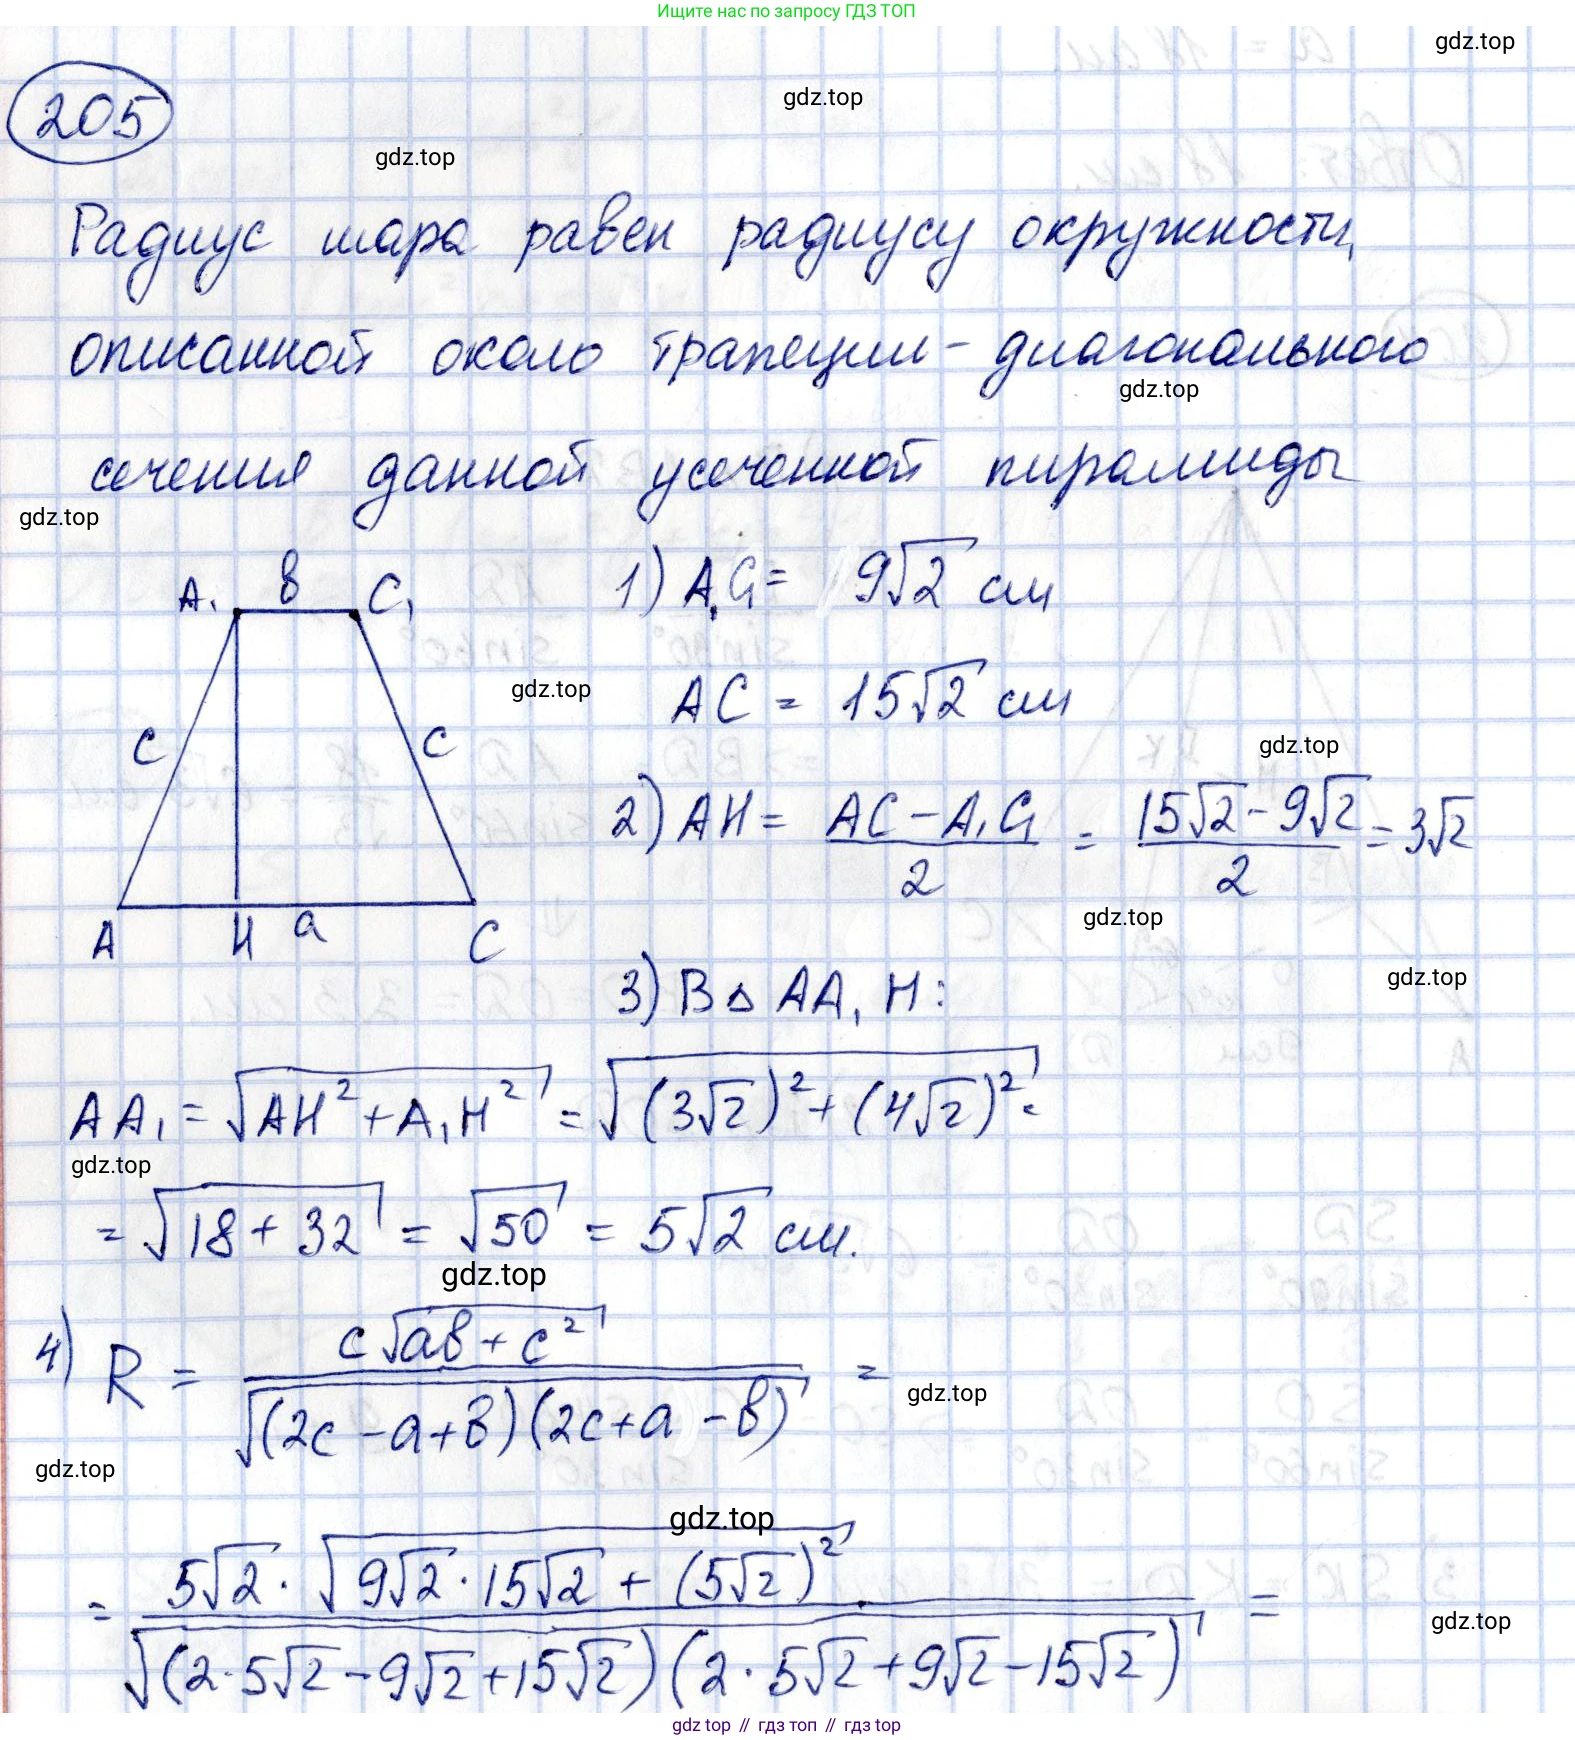 Ищите нас по запросу ГДЗ ТОП
gdz.top
gdz.top
205
gdz.top
Радиус шара равен радиусу окружности,
описанной около трапеции - диагонального
gdz.top
сечения данной усеченной пирамиды
gdz.top
A₁ b C₁
1) A₁C₁ = 9√2 см
gdz.top
AC = 15√2 см
c c
gdz.top
2) AH = (AC - A₁C₁)/2 = (15√2 - 9√2)/2 = 3√2
gdz.top
A H a C
gdz.top
3) В △ AA₁H:
AA₁ = √(AH² + A₁H²) = √((3√2)² + (4√2)²) =
gdz.top
= √(18 + 32) = √50 = 5√2 см.
gdz.top
4) R = c√(ab + c²) / √((2c - a + b)(2c + a - b)) =
gdz.top
gdz.top
gdz.top
= 5√2 · √(9√2 · 15√2 + (5√2)²) / √((2·5√2 - 9√2 + 15√2)(2·5√2 + 9√2 - 15√2)) =
gdz.top
gdz top // гдз топ // гдз top